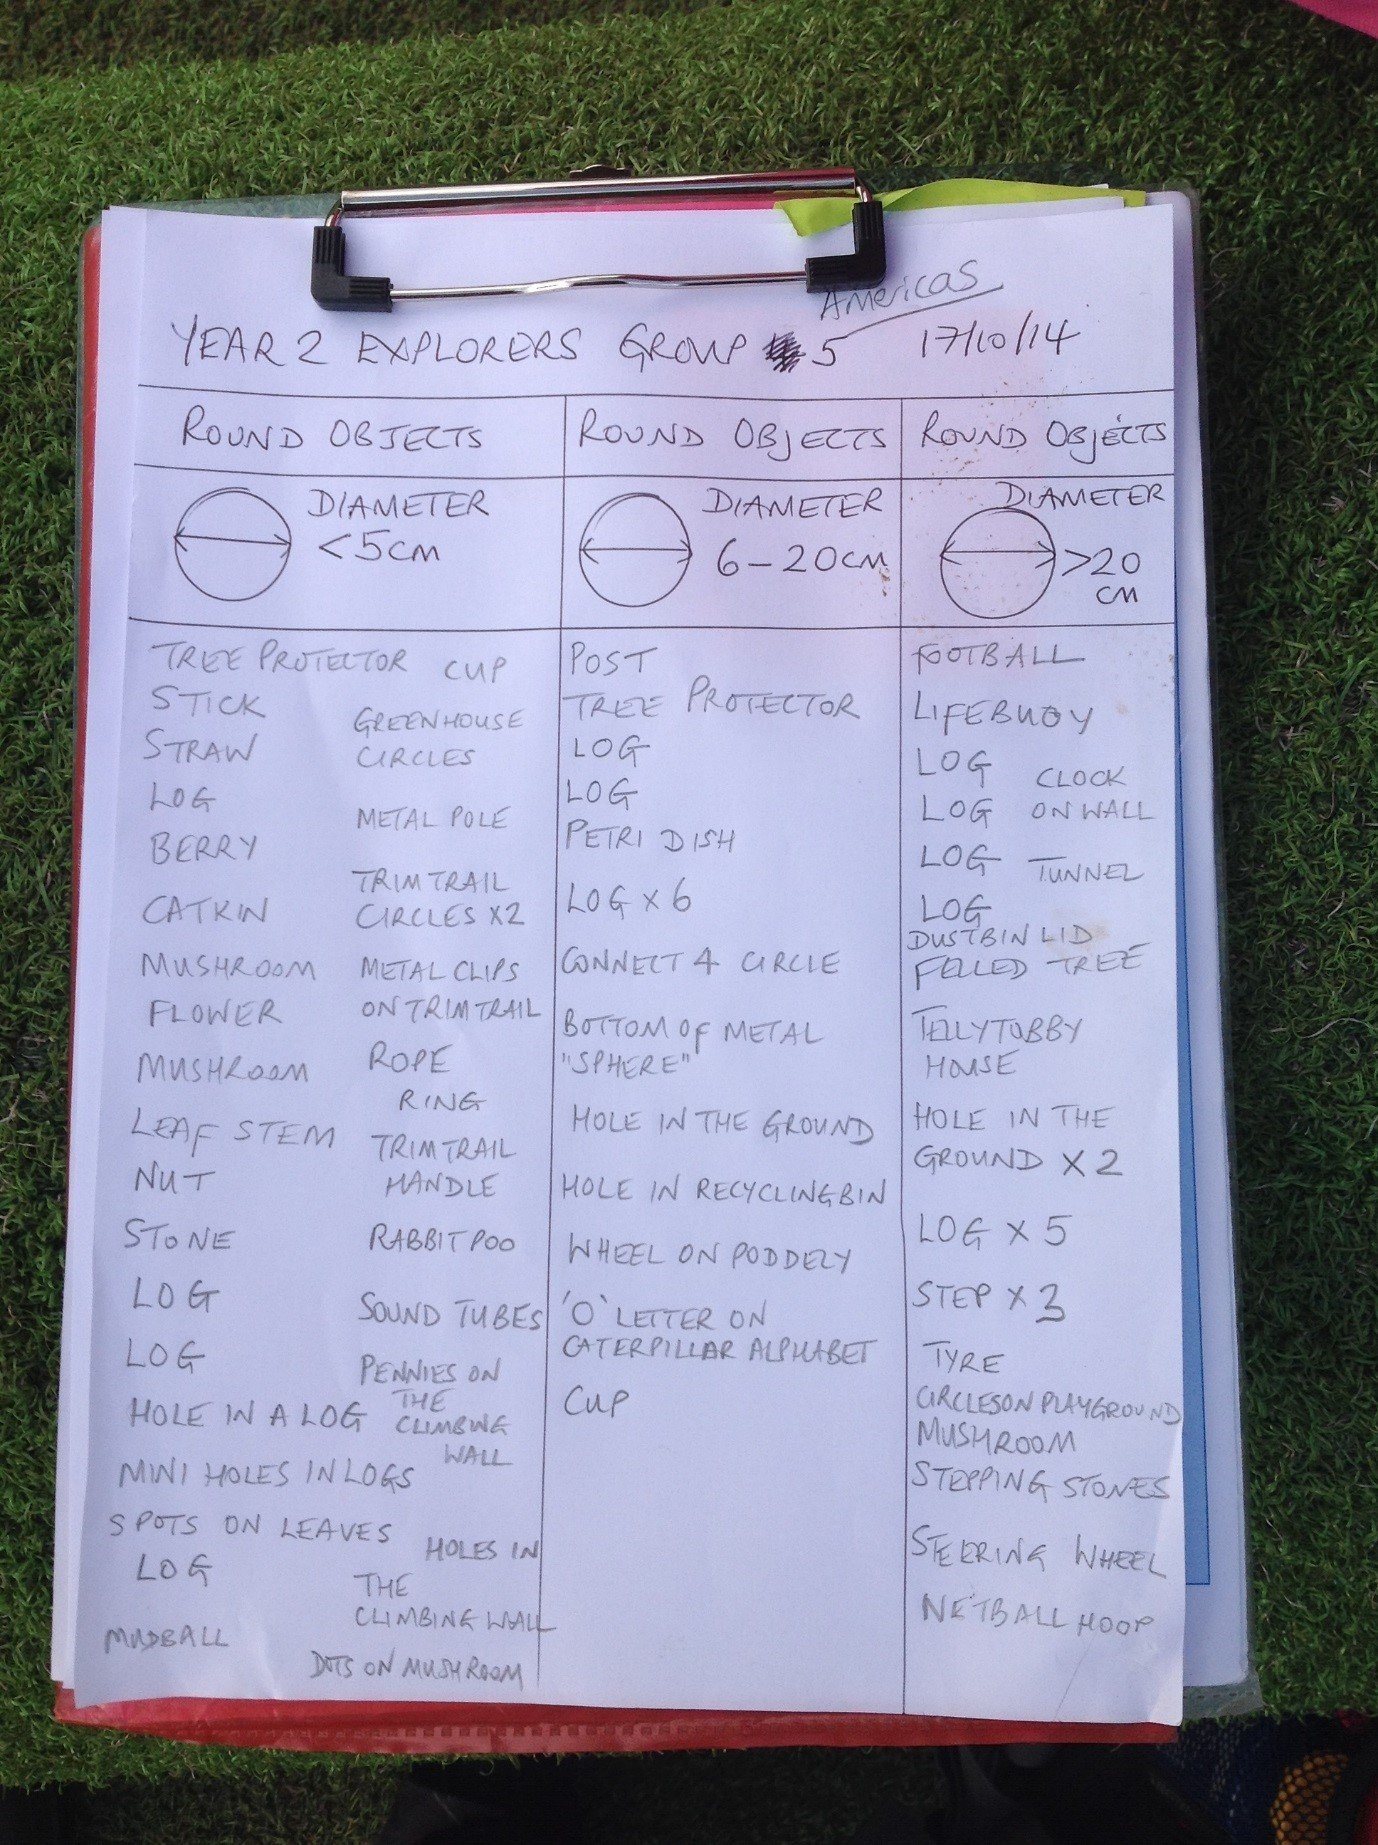 Americas
YEAR 2 EXPLORERS GROUP 5 17/10/14
ROUND OBJECTS
DIAMETER
<5cm
TREE PROTECTOR
STICK
STRAW
LOG
BERRY
CATKIN
MUSHROOM
FLOWER
MUSHROOM
LEAF STEM
NUT
STONE
LOG
LOG
HOLE IN A LOG
MINI HOLES IN LOGS
SPOTS ON LEAVES
LOG
MUDBALL
CUP
GREENHOUSE
CIRCLES
METAL POLE
TRIM TRAIL
CIRCLES X2
METAL CLIPS
ON TRIM TRAIL
ROPE
RING
TRIM TRAIL
HANDLE
RABBIT POO
SOUND TUBES
PENNIES ON
THE
CLIMBING
WALL
HOLES IN
THE
CLIMBING WALL
DOTS ON MUSHROOM
ROUND OBJECTS
DIAMETER
6-20cm
POST
TREE PROTECTOR
LOG
LOG
PETRI DISH
LOG x 6
CONNECT 4 CIRCLE
BOTTOM OF METAL
"SPHERE"
HOLE IN THE GROUND
HOLE IN RECYCLING BIN
WHEEL ON PODDELY
'O' LETTER ON
CATERPILLAR ALPHABET
CUP
ROUND OBJECTS
DIAMETER
>20
cm
FOOTBALL
LIFEBUOY
LOG
LOG
LOG
LOG
CLOCK
ON WALL
TUNNEL
DUSTBIN LID
FELLED TREE
TELLYTUBBY
HOUSE
HOLE IN THE
GROUND X 2
LOG X 5
STEP X 3
TYRE
CIRCLES ON PLAYGROUND
MUSHROOM
STEPPING STONES
STEERING WHEEL
NETBALL HOOP